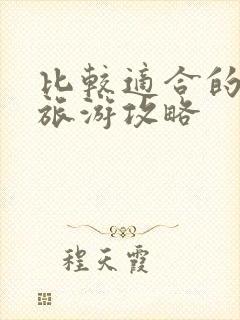 比较適合的
旅游攻略
程天霞